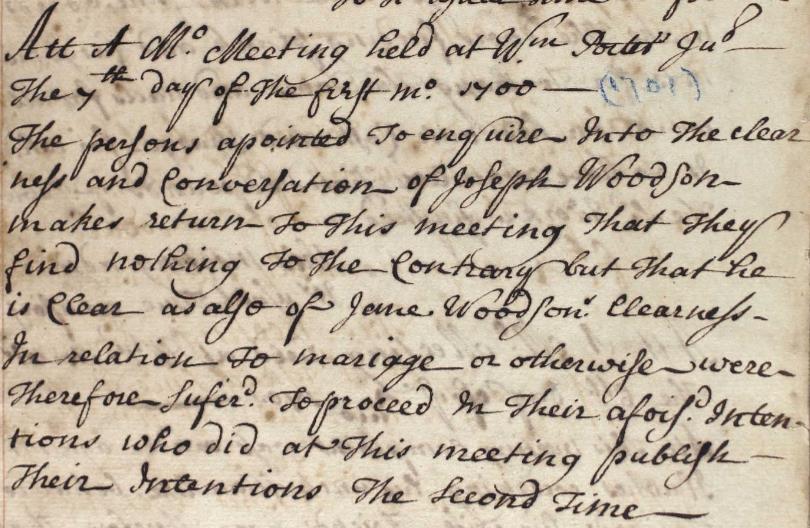 Att A Mo. Meeting held at Wm Porters Junr
The 7th day of The first mo. 1700 — (1701)
The persons apointed To enquire Into The clear
ness and Conversation of Joseph Woodson
makes return To This meeting That They
find nothing To The Contrary but That he
is Clear as also of Jane Woodsons. Clearness-
In relation To mariage or otherwise were-
Therefore Sufer'd. To proceed In Their afois'd. Inten-
tions who did at This meeting publish —
Their Intentions The Second Time —